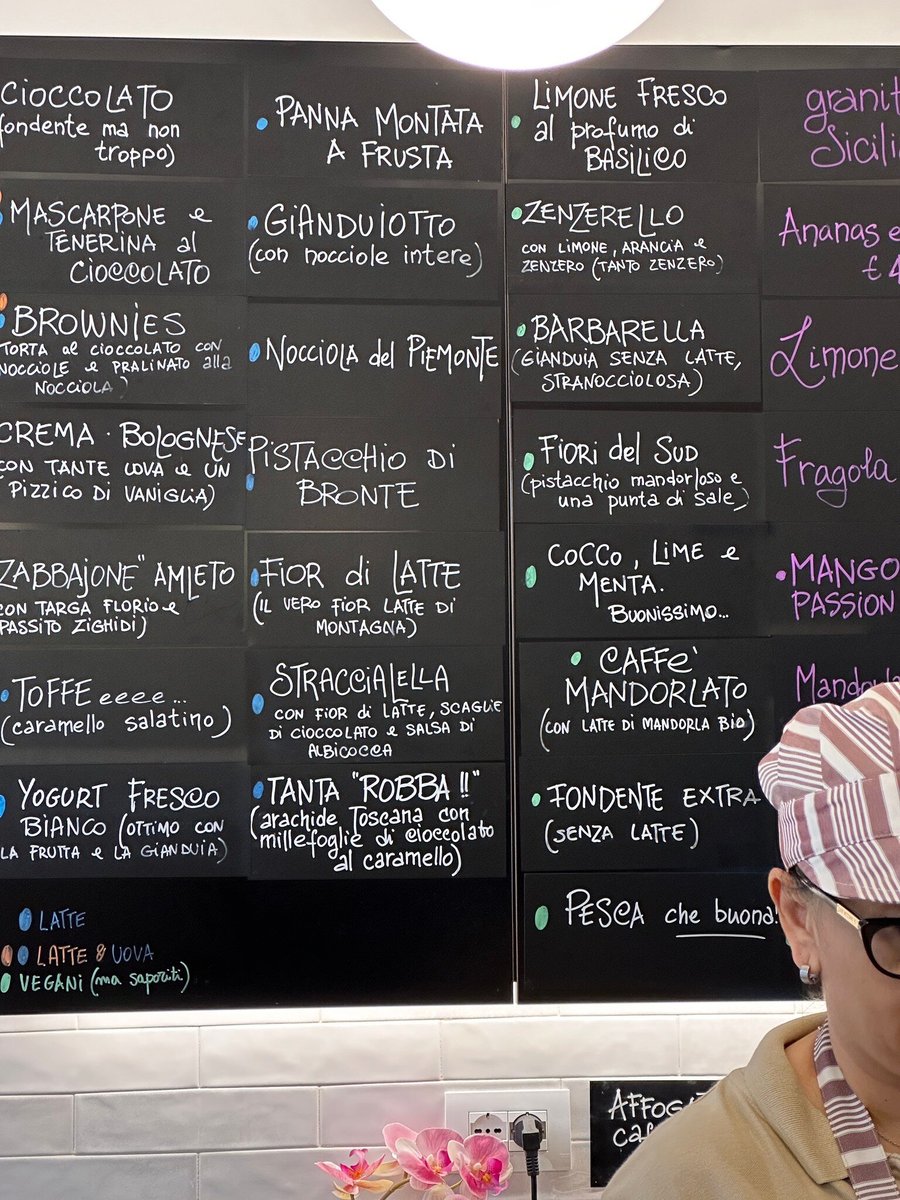 CIOCCOLATO
fondente ma non
troppo)
MASCARPONE e
TENERINA al
CIOCCOLATO
BROWNIES
TORTA al CIOCCOLATO CON
NOCCIOLE e PRALINATO alla
NOCCIOLA)
CREMA . BOLOGNESE
CON TANTE UOVA e UN
PIZZICO DI VANIGLIA)
ZABBAJONE" AMLETO
CON TARGA FLORIO e
PASSITO ZIGHIDI)
TOFFEeeee...
(caramello salatino)
YOGURT FRESCO
BIANCO (OTTIMO CON
LA FRUTTA e LA GIANDUIA)
LATTE
LATTE & UOVA
VEGANI (ma saporiti)
PANNA MONTATA
A FRUSTA
GIANDUIOTTO
(con nocciole intere)
NOCCIOLA del PIEMONTE
PISTACCHIO DI
BRONTE
FIOR di LATTE
(IL VERO FIOR LATTE DI
MONTAGNA)
STRACCIALELLA
CON FIOR di LATTE, SCAGLIE
DI CIOCCOLATO e SALSA DI
ALBICOCCA
TANTA "ROBBA !!"
(arachide Toscana con
millefoglie di cioccolato
al caramello)
LIMONE FRESCO
al profumo di
BASILICO
ZENZERELLO
CON LIMONE, ARANCIA e
ZENZERO (TANTO ZENZERO)
BARBARELLA
(GIANDUIA SENZA LATTE,
STRANOCCIOLOSA)
FIORI del SUD
(pistacchio mandorloso e
una punta di sale)
COCCO, LIME e
MENTA.
BUONISSIMO...
CAFFE'
MANDORLATO
(CON LATTE DI MANDORLA BIO)
FONDENTE EXTRA
(SENZA LATTE)
PESCA che buona!
granit
Sicili
Ananas e
€ 4
Limone
Fragola
MANGO
PASSION
Mandorla
AFFOGAT
caf